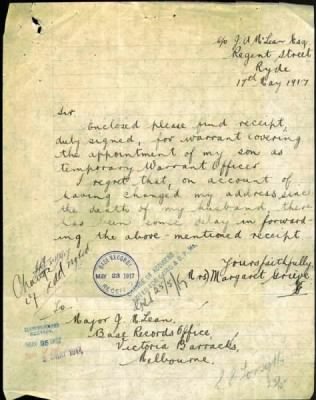 c/o J. A. McLean Esq
Regent Street
Ryde
17th May 1917
Sir
Enclosed please find receipt,
duly signed, for warrant covering
the appointment of my son as
temporary Warrant Officer
I regret that, on account of
having changed my address since
the death of my husband there
has been some delay in forward-
ing the above-mentioned receipt
Yours faithfully
(Mrs) Margaret
Change
of address
noted
BASE RECORDS
MAY 1917
To
Major J. McLean,
Base Records Office,
Victoria Barracks,
Melbourne.